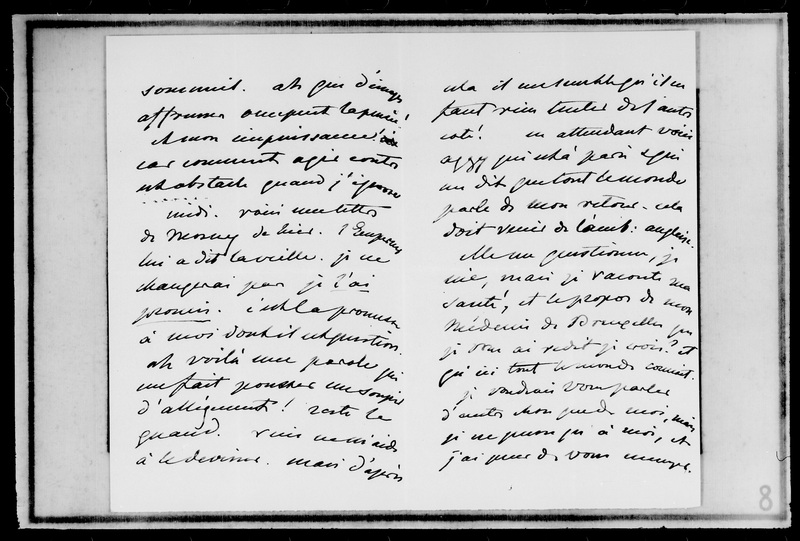 sommeil. ah que d'image
affreuse occupent la pensée!
et mon impuissance!
car comment agir contre
cet obstacle quand j'ignore
midi. voici une lettre
de Morny de hier. l'Empereur
lui a dit la veille. je ne
changerai pas je l'ai
promis. c'est la promesse
à moi dont il est question.
ah voilà une parole qui
me fait pousser un soupir
d'allégement! reste le
quand. vous m'aide
à le deviner. mais d'après
cela il me semble qu'il ne
faut rien tenter de l'autre
coté! en attendant voici
aggy qui est à paris & qui
me dit que tout le monde
parle de mon retour. cela
doit venir de l'amb: anglaise.
elle me questionne, je
nie, mais je raconte ma
santé, et le propos de mon
Médecin de Bruxelles que
je vous ai redit je crois? et
qu'ici tout le monde connait.
je voudrais vous parler
d'autre chose que de moi, mais
je ne pense qu'à moi, et
j'ai peur de vous ennuyer.
8